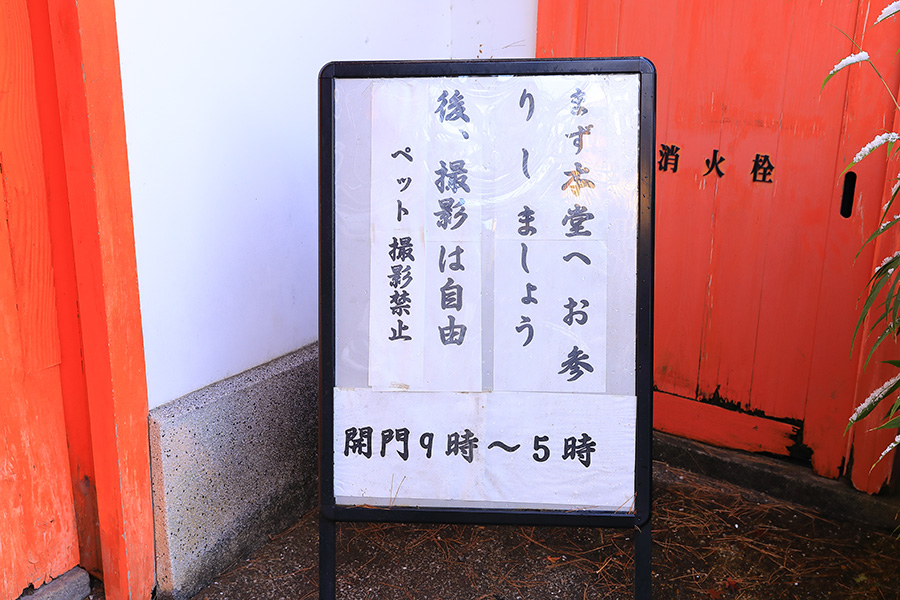 まず本堂へお参
りしましょう
後、撮影は自由
ペット撮影禁止
開門9時〜5時
消火栓